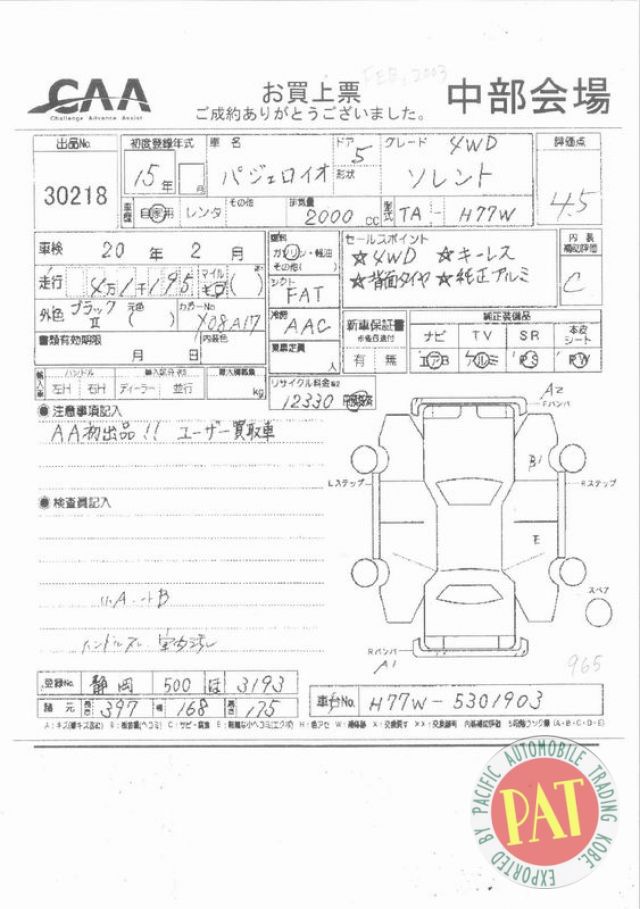 FEB, 2003
CAA
Challenge Advance Assist
お買上票
ご成約ありがとうございました。
中部会場
出品No.
30218
初度登録年式
15年 月
車名
パジェロイオ
ドア
5
形状
グレード
4WD
ソレント
評価点
4.5
車歴
自家用
レンタ
その他
排気量
2000 cc
型式
TA - H77W
車検
20 年 2 月
走行
4万1千195
マイル
キロ
( )
外色
ブラック
Ⅱ
元色
( )
カラーNo.
X08A17
内装色
書類有効期限
月 日
燃料
ガソリン・軽油
その他( )
シフト
FAT
冷房
AAC
乗車定員
人
セールスポイント
☆4WD ☆キーレス
☆背面タイヤ ☆純正アルミ
内装
補助評価
C
新車保証書
有 無
純正装備品
ナビ
TV
SR
本皮
シート
エアB
アルミ
PS
PW
輸入車
ハンドル
左H
右H
ディーラー
並行
最大積載量
kg
リサイクル料金
12330
預託済
●注意事項記入
AA初出品!! ユーザー買取車
●検査員記入
A2
Fバンパ
B1
Lステップ
Rステップ
E
スペア
Rバンパ
A1
965
登録No.
静岡
500
ほ
3193
諸元
長さ
397
幅
168
高さ
175
車台No.
H77W-5301903
EXPORTED BY PACIFIC AUTOMOBILE TRADING KOBE.
PAT